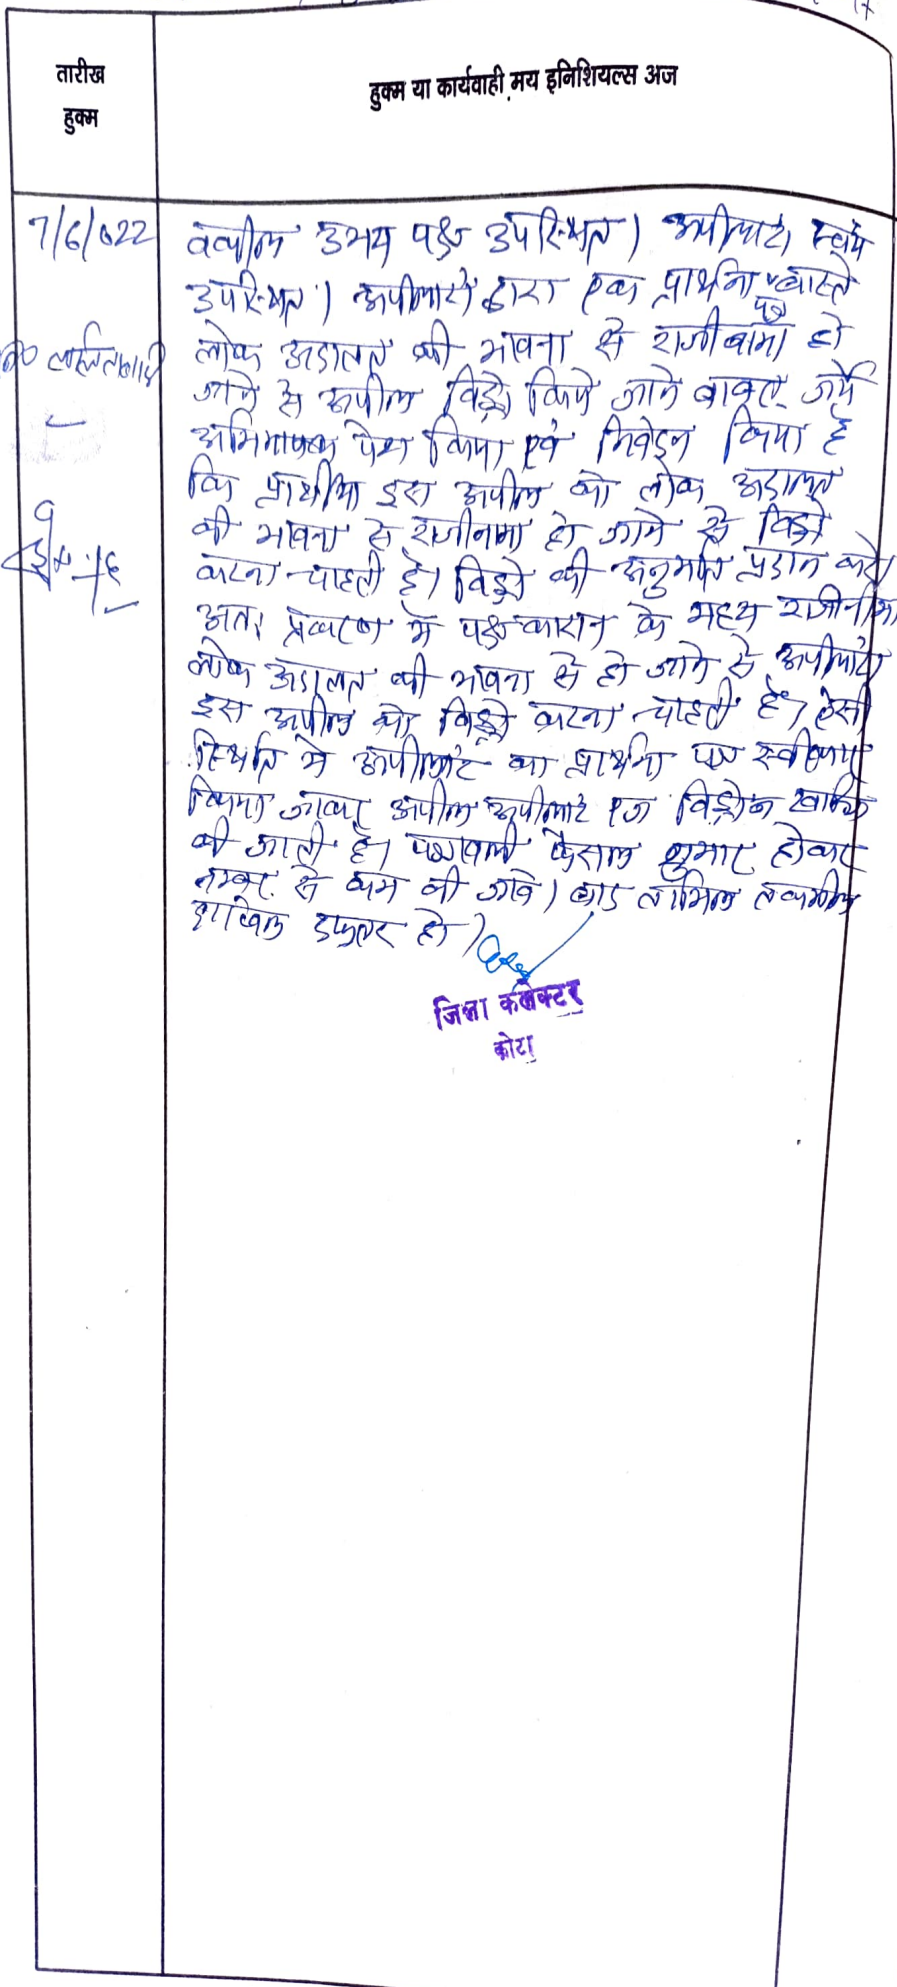 तारीख
हुक्म
हुक्म या कार्यवाही मय इनिशियल्स अज
7/6/022
वकील उभय पक्ष उपस्थित। अपीलांट स्वयं
उपस्थित। अपीलांट द्वारा एक प्रार्थना पत्र वास्ते
लोक अदालत की भावना से राजीनामा हो
जाने से अपील विड्रो किये जाने बाबत् जर्ये
अभिभाषक पेश किया एवं निवेदन किया है
कि प्रार्थीया इस अपील को लोक अदालत
की भावना से राजीनामा हो जाने से विड्रो
करना चाहती है। विड्रो की अनुमति प्रदान करें।
अतः प्रकरण में पक्षकारान के मध्य राजीनामा
लोक अदालत की भावना से हो जाने से अपीलांट
इस अपील को विड्रो करना चाहती है। ऐसी
स्थिति में अपीलांट का प्रार्थना पत्र स्वीकार
किया जाकर अपील अपीलांट एज विड्रोन खारिज
की जाती है। पत्रावली फैसल शुमार होकर
नम्बर से कम की जावे। बाद तामिल तकमील
दाखिल दफ्तर हो।
जिला कलेक्टर
कोटा